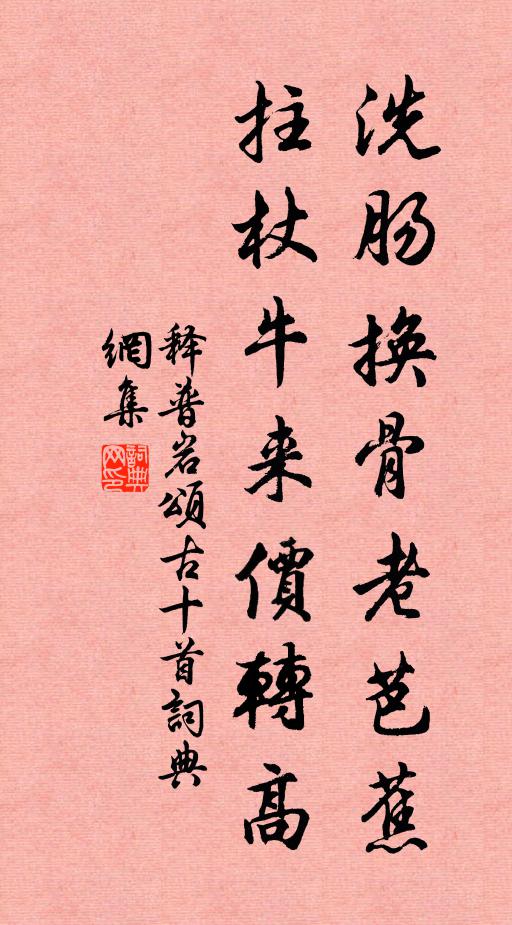 洗肠换骨老芭蕉
拄杖牛来價轉高
释普岩頌古十首詞典
網集
詞典網印